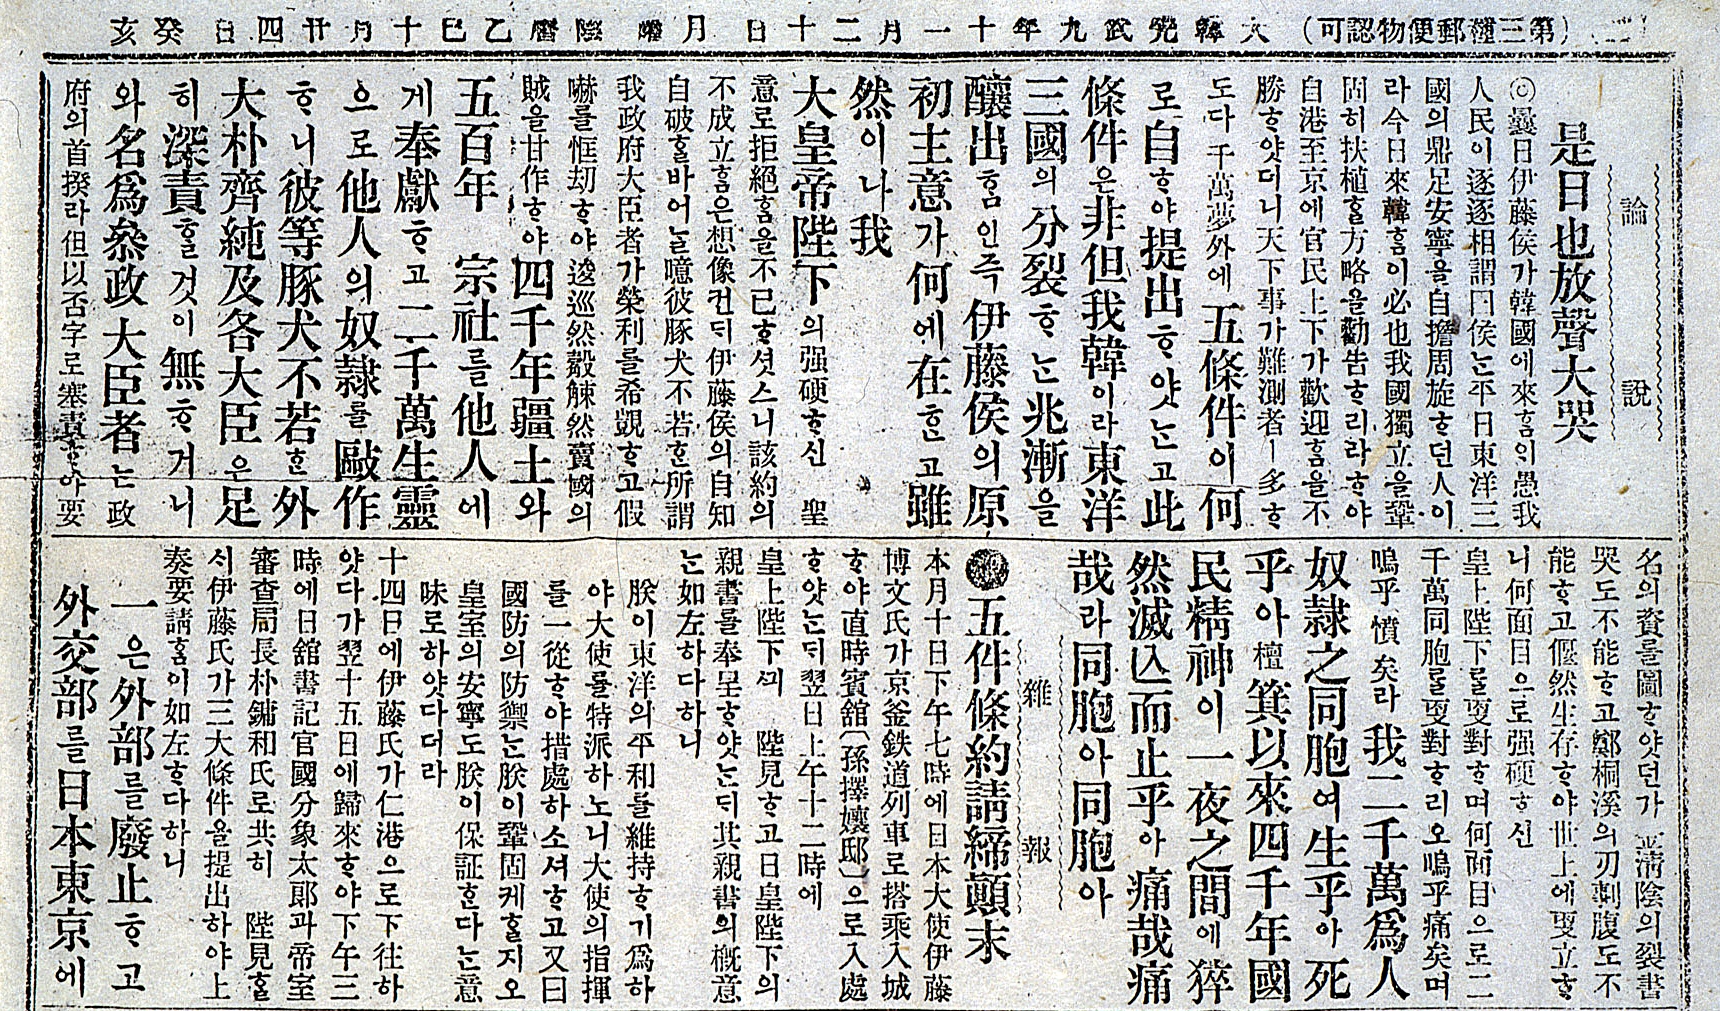 (二) (第三種郵便物認可) 大韓光武九年十一月二十日 月曜 陰曆乙巳十月廿四日癸亥
論說
是日也放聲大哭
◎曩日伊藤侯가韓國에來홈의愚我
人民이逐逐相謂曰侯는平日東洋三
國의鼎足安寧을自擔周旋ᄒᆞ던人이
라今日來韓홈이必也我國獨立을鞏
固히扶植ᄒᆞᆯ方略을勸告ᄒᆞ리라ᄒᆞ야
自港至京에官民上下가歡迎홈을不
勝ᄒᆞ얏더니天下事가難測者ㅣ多ᄒᆞ
도다千萬夢外에五條件이何
로自ᄒᆞ야提出ᄒᆞ얏ᄂᆞᆫ고此
條件은非但我韓이라東洋
三國의分裂ᄒᆞᄂᆞᆫ兆漸을
釀出홈인즉伊藤侯의原
初主意가何에在ᄒᆞᆫ고雖
然이나我
大皇帝陛下의强硬ᄒᆞ신 聖
意로拒絕홈을不已ᄒᆞ셧스니該約의
不成立홈은想像컨ᄃᆡ伊藤侯의自知
自破ᄒᆞᆯ바어ᄂᆞᆯ噫彼豚犬不若ᄒᆞᆫ所謂
我政府大臣者가榮利를希覬ᄒᆞ고假
嚇를恇刼ᄒᆞ야逡巡然觳觫然賣國의
賊을甘作ᄒᆞ야四千年疆土와
五百年 宗社를他人에
게奉獻ᄒᆞ고二千萬生靈
으로他人의奴隷를敺作
ᄒᆞ니彼等豚犬不若ᄒᆞᆫ外
大朴齊純及各大臣은足
히深責ᄒᆞᆯ것이無ᄒᆞ거니
와名爲叅政大臣者는政
府의首揆라但以否字로塞責ᄒᆞ야要
名의資를圖ᄒᆞ얏던가 金淸陰의裂書
哭도不能ᄒᆞ고鄭桐溪의刃剚腹도不
能ᄒᆞ고偃然生存ᄒᆞ야世上에更立ᄒᆞ
니何面目으로强硬ᄒᆞ신
皇上陛下를更對ᄒᆞ며何面目으로二
千萬同胞를更對ᄒᆞ리오嗚乎痛矣며
嗚乎憤矣라我二千萬爲人
奴隷之同胞여生乎아死
乎아檀箕以來四千年國
民精神이一夜之間에猝
然滅亾而止乎아痛哉痛
哉라同胞아同胞아
雜報
●五件條約請締顚末
本月十日下午七時에日本大使伊藤
博文氏가京釜鉄道列車로搭乘入城
ᄒᆞ야直時賓舘(孫擇孃邸)으로入處
ᄒᆞ얏ᄂᆞᆫᄃᆡ翌日上午十二時에
皇上陛下ᄭᅴ 陛見ᄒᆞ고日皇陛下의
親書를奉呈ᄒᆞ얏ᄂᆞᆫᄃᆡ共親書의槪意
ᄂᆞᆫ如左하다하니
朕이東洋의平和를維持ᄒᆞ기爲하
야大使를特派하노니大使의指揮
를一從ᄒᆞ야措處하소셔ᄒᆞ고又曰
國防의防禦ᄂᆞᆫ朕이鞏固케ᄒᆞᆯ지오
皇室의安寧도朕이保証ᄒᆞᆫ다ᄂᆞᆫ意
味로하얏다더라
十四日에伊藤氏가仁港으로下往하
얏다가翌十五日에歸來ᄒᆞ야下午三
時에日舘書記官國分象太郞과帝室
審査局長朴鏞和氏로共히 陛見ᄒᆞᆯ
시伊藤氏가三大條件을提出하야上
奏要請홈이如左ᄒᆞ다하니
一은外部를廢止ᄒᆞ고
外交部를日本東京에